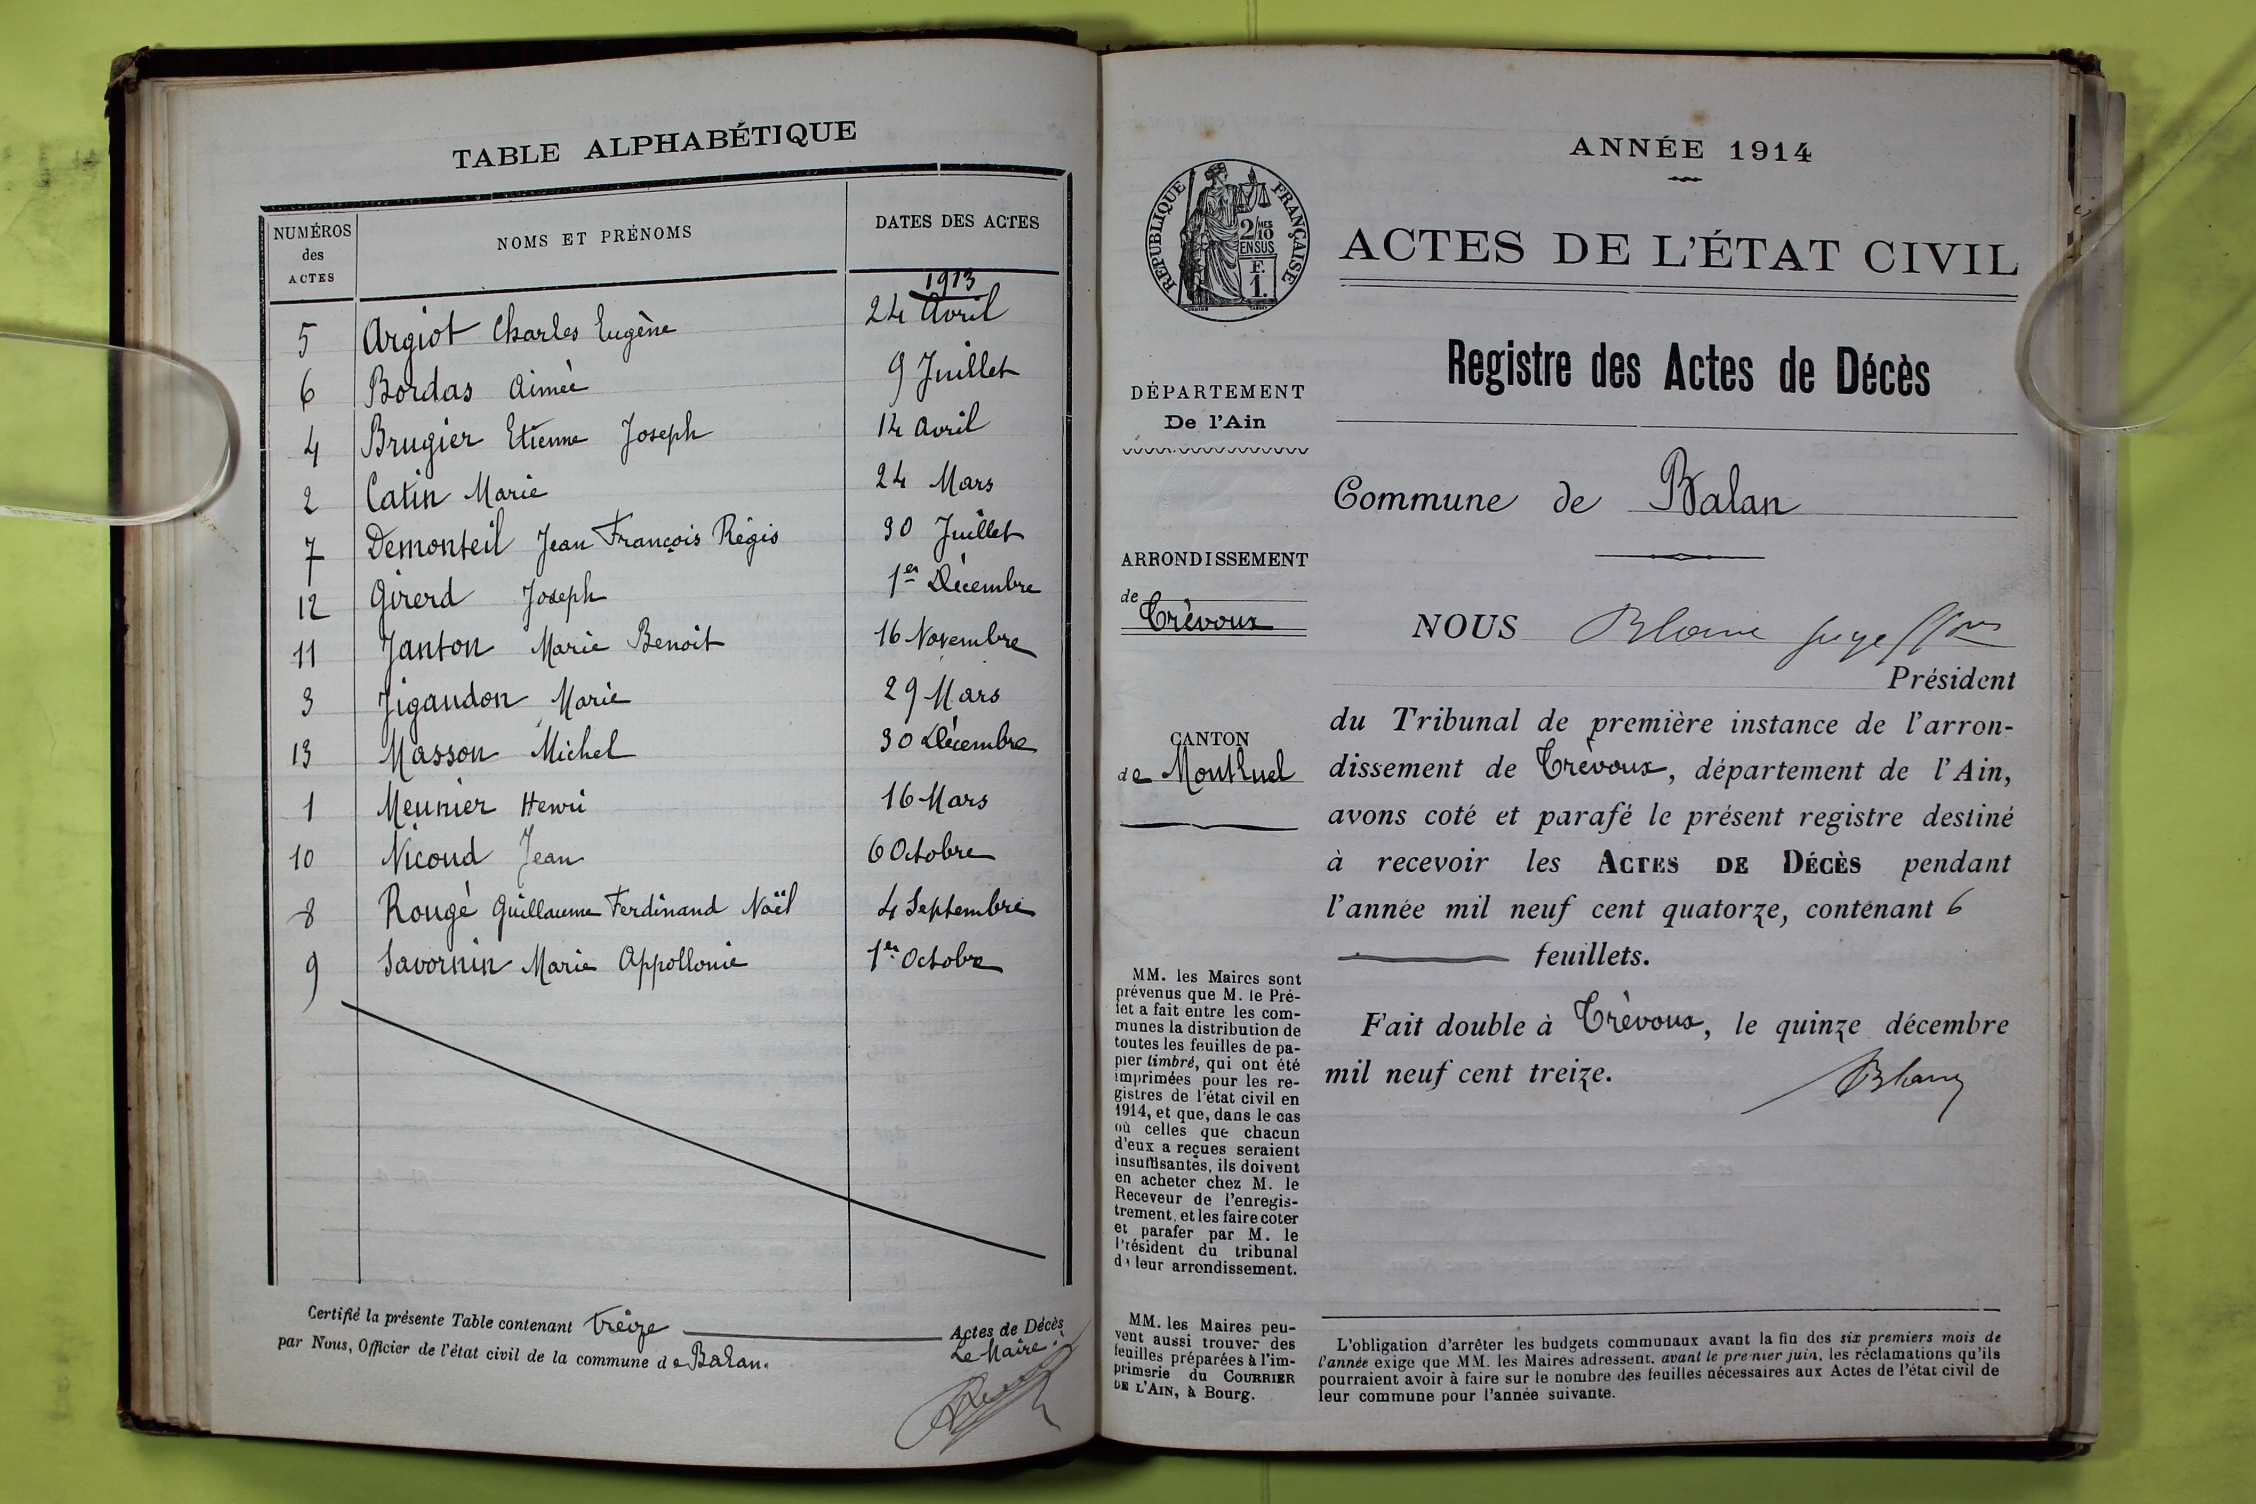 TABLE ALPHABÉTIQUE
NUMÉROS
des
ACTES
NOMS ET PRÉNOMS
DATES DES ACTES
1913
5 Argiot Charles Eugène 24 Avril
6 Bordas Aimée 9 Juillet
4 Brugier Etienne Joseph 14 avril
2 Catin Marie 24 Mars
7 Demonteil Jean François Régis 30 Juillet
12 Girerd Joseph 1er Décembre
11 Janton Marie Benoit 16 Novembre
3 Jigaudon Marie 29 Mars
13 Masson Michel 30 Décembre
1 Meunier Henri 16 Mars
10 Nicoud Jean 6 Octobre
8 Rougé Guillaume Ferdinand Noël 4 Septembre
9 Savornin Marie Appollonie 1er Octobre
Certifié la présente Table contenant treize Actes de Décès
par Nous, Officier de l'état civil de la commune de Balan.
Le Maire :
ANNÉE 1914
RÉPUBLIQUE FRANÇAISE
2/10 MES
EN SUS
F.
1.
ACTES DE L'ÉTAT CIVIL
Registre des Actes de Décès
DÉPARTEMENT
De l'Ain
Commune de Balan
ARRONDISSEMENT
de
Trévoux
NOUS
Président
CANTON
de Montluel
du Tribunal de première instance de l'arron-
dissement de Trévoux, département de l'Ain,
avons coté et parafé le présent registre destiné
à recevoir les ACTES DE DÉCÈS pendant
l'année mil neuf cent quatorze, contenant 6
feuillets.
Fait double à Trévoux, le quinze décembre
mil neuf cent treize.
MM. les Maires sont
prévenus que M. le Pré-
fet a fait entre les com-
munes la distribution de
toutes les feuilles de pa-
pier timbré, qui ont été
imprimées pour les re-
gistres de l'état civil en
1914, et que, dans le cas
où celles que chacun
d'eux a reçues seraient
insuffisantes, ils doivent
en acheter chez M. le
Receveur de l'enregis-
trement, et les faire coter
et parafer par M. le
Président du tribunal
de leur arrondissement.
MM. les Maires peu-
vent aussi trouver des
feuilles préparées à l'im-
primerie du COURRIER
DE L'AIN, à Bourg.
L'obligation d'arrêter les budgets communaux avant la fin des six premiers mois de
l'année exige que MM. les Maires adressent, avant le premier juin, les réclamations qu'ils
pourraient avoir à faire sur le nombre des feuilles nécessaires aux Actes de l'état civil de
leur commune pour l'année suivante.